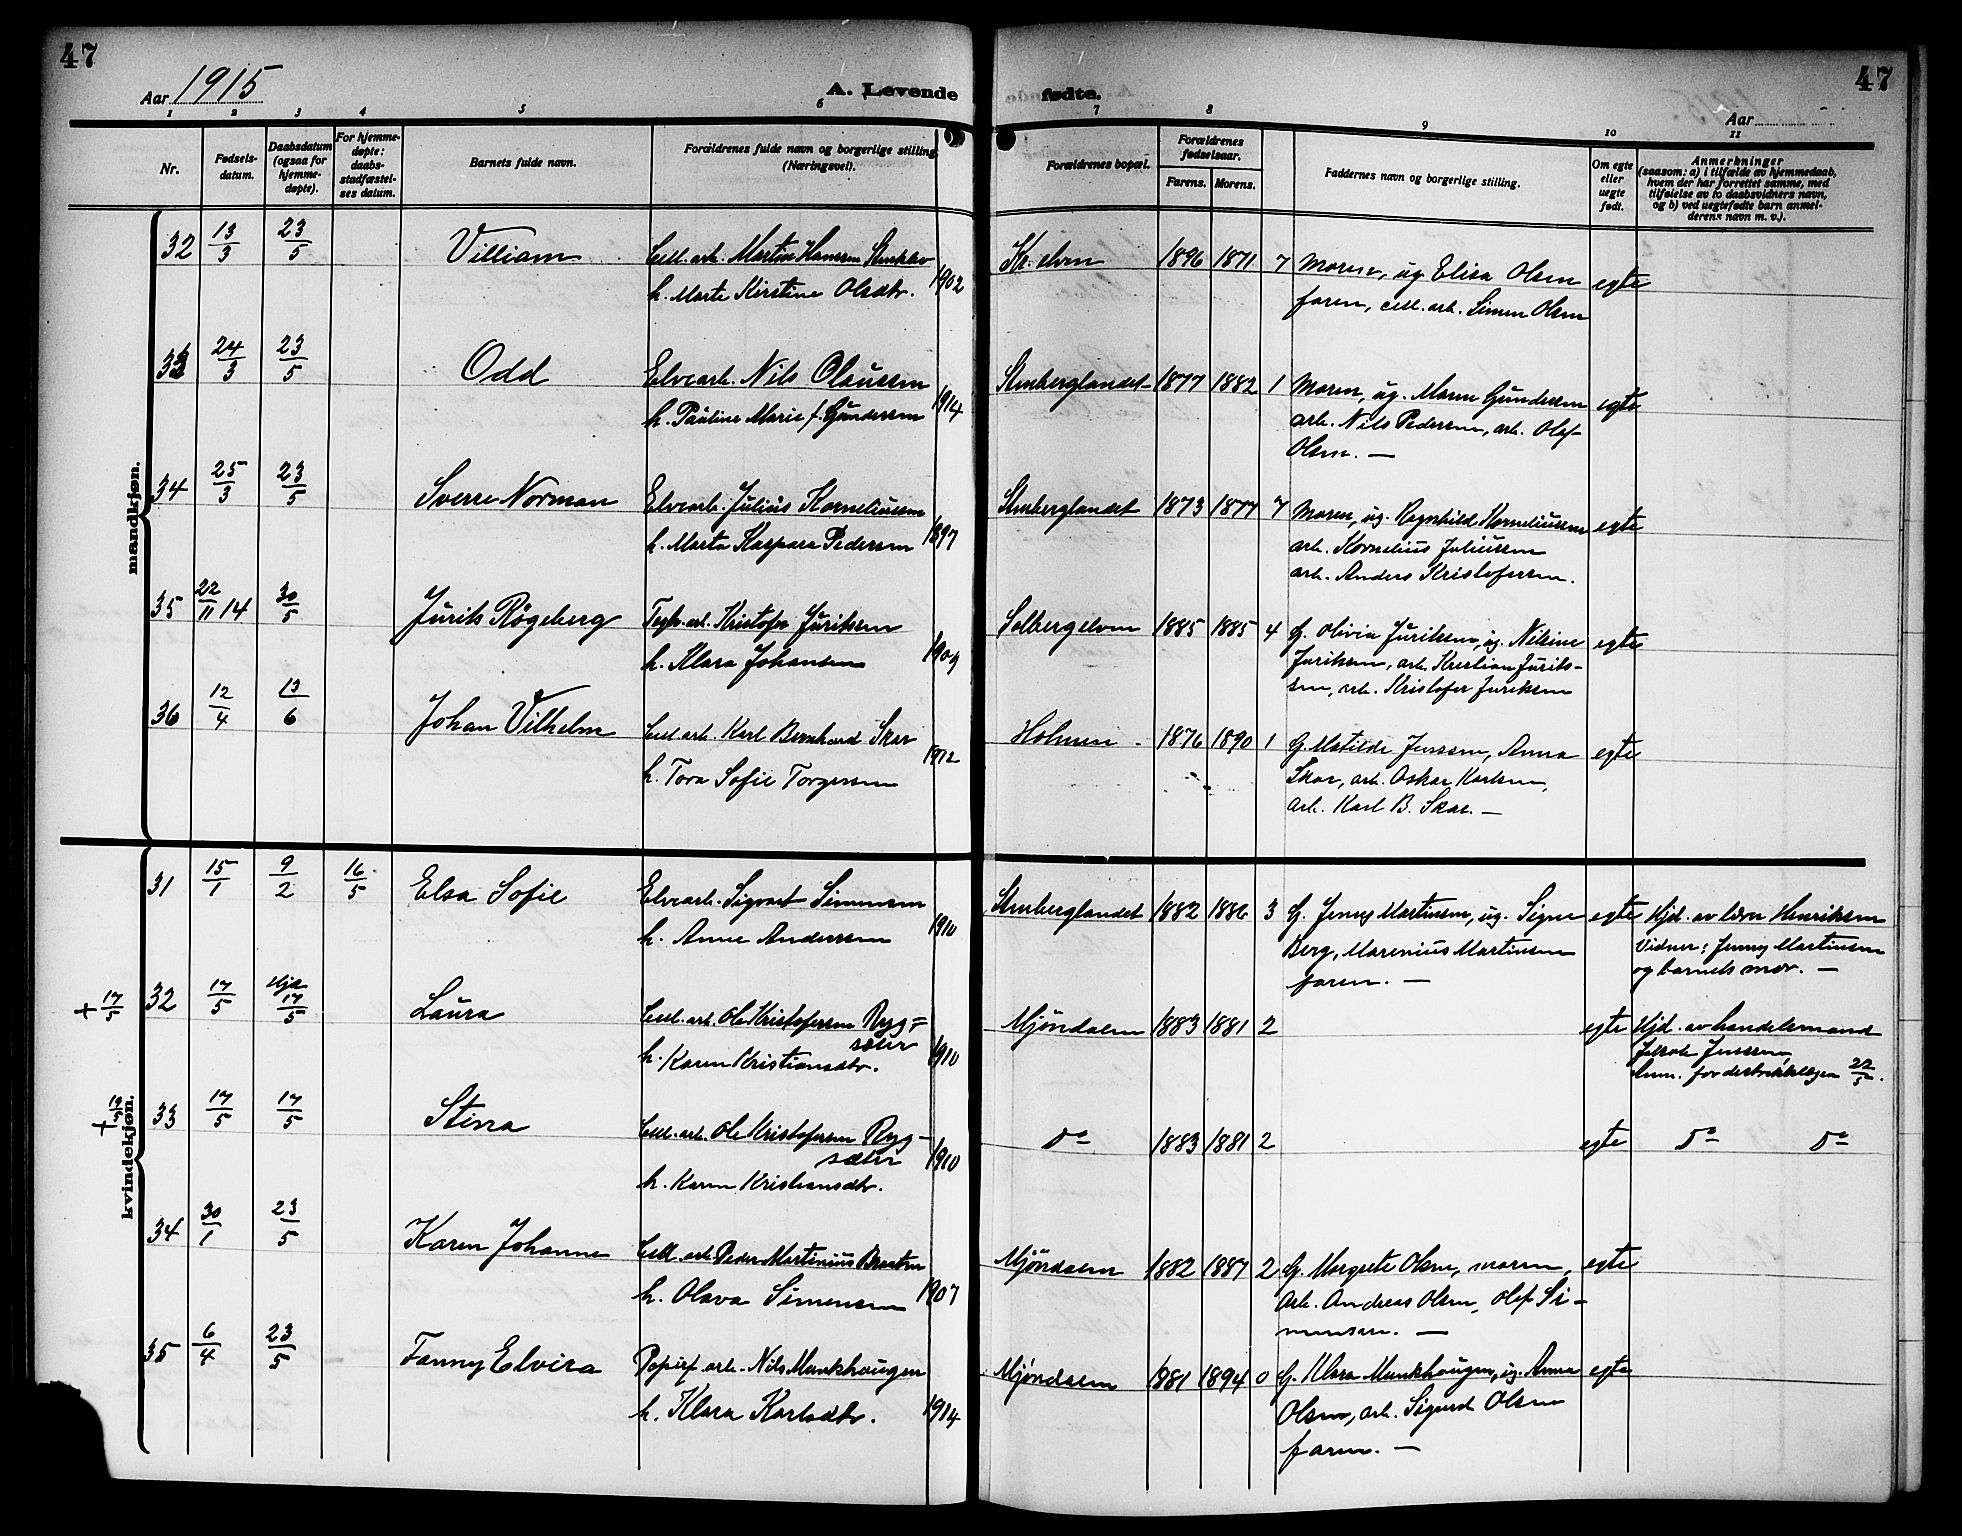 47
47
Aar 1915
A. Levende
fødte.
Aar
1 2 3 4 5 6 7 8 9 10 11
Nr.
Fødsels-
datum.
Daabsdatum
(ogsaa for
hjemme-
døpte).
For hjemme-
døpte:
daabs-
stadfæstel-
ses datum.
Barnets fulde navn.
Forældrenes fulde navn og borgerlige stilling
(Næringsvei).
Forældrenes bopæl.
Forældrenes
fødselsaar.
Farens. Morens.
Faddernes navn og borgerlige stilling.
Om egte
eller
uegte
født.
Anmerkninger
(saasom: a) i tilfælde av hjemmedaab,
hvem der har forrettet samme, med
tilføielse av to daabsvidners navn,
og b) ved uegtefødte barn anmel-
derens navn m. v.).
mandkjøn.
32 13/3 23/5 Villiam Cell. arb. Martin Hansen 1902 Kr. elven 1896 1871 7 Moren, ug. Elisa Olsen egte
h. Marte Kirstine Olsdtr. faren, cell. arb. Simen Olsen
33 24/3 23/5 Odd Elvearb. Nils Olaussen 1914 Stenberglandet 1877 1882 1 Moren, ug. Maren Gundersen egte
h. Pauline Marie f. Gundersen arb. Nils Pedersen, arb. Olef
Olsen. —
34 25/3 23/5 Sverre Norman Elvearb. Julius Korneliussen 1897 Stenberglandet 1873 1877 7 Moren, ug. Ragnhild Korneliussen egte
h. Marta Kaspara Pedersen arb. Kornelius Juliussen
arb. Anders Kristofersen.
35 22/11 14 30/5 Jurits Røgeberg Kristofer Juriksen 1909 Solbergelven 1885 1885 4 G. Olivia Juriksen, ug. Nilsine egte
h. Klara Johansen Juriksen, arb. Kristian Jurik-
sen, arb. Kristofer Juriksen
36 12/4 13/6 Johan Vilhelm Cell. arb. Karl Bernhard Skar 1912 Holmen - 1876 1890 1 G. Matilde Jenssen, Anna egte
h. Tora Sofie Torgersen Skar, arb. Oskar Karlsen,
arb. Karl B. Skar. —
kvindekjøn.
31 15/1 9/2 16/5 Elsa Sofie Elvearb. Sigvart Simensen 1910 Stenberglandet 1882 1886 3 G. Jenny Martinsen, ug. Signe egte Hjd. av lærer Henriksen
h. Anne Andersen Berg, Marenius Martinsen Vidner: Jenny Martinsen
faren. — og barnets mor. —
+ 17/5 32 17/5 Hjd. 17/5 Laura Cell. arb. Ole Kristofersen Ryg- 1910 Mjøndalen 1883 1881 2 egte Hjd. av handelsmand
sæter Jakob Jenssen,
h. Karen Kristiansdtr. Anm. for distriktslægen 22/5.
+ 19/5 33 17/5 17/5 Stina Cell. arb. Ole Kristofersen Ryg- 1910 Do 1883 1881 2 egte Do Do
sæter
h. Karen Kristiansdtr.
34 30/1 23/5 Karen Johanne Cell. arb. Peder Martinius Braaten 1907 Mjøndalen 1882 1887 2 G. Margrete Olsen, moren, egte
h. Olava Simensen arb. Andreas Olsen, Olef Si-
mensen. —
35 6/4 23/5 Fanny Elvira Papirf. arb. Nils Munkhaugen 1914 Mjøndalen 1881 1894 0 G. Klara Munkhaugen, ug. Anna egte
h. Klara Karlsdtr. Olsen, arb. Sigurd Olsen
faren. —